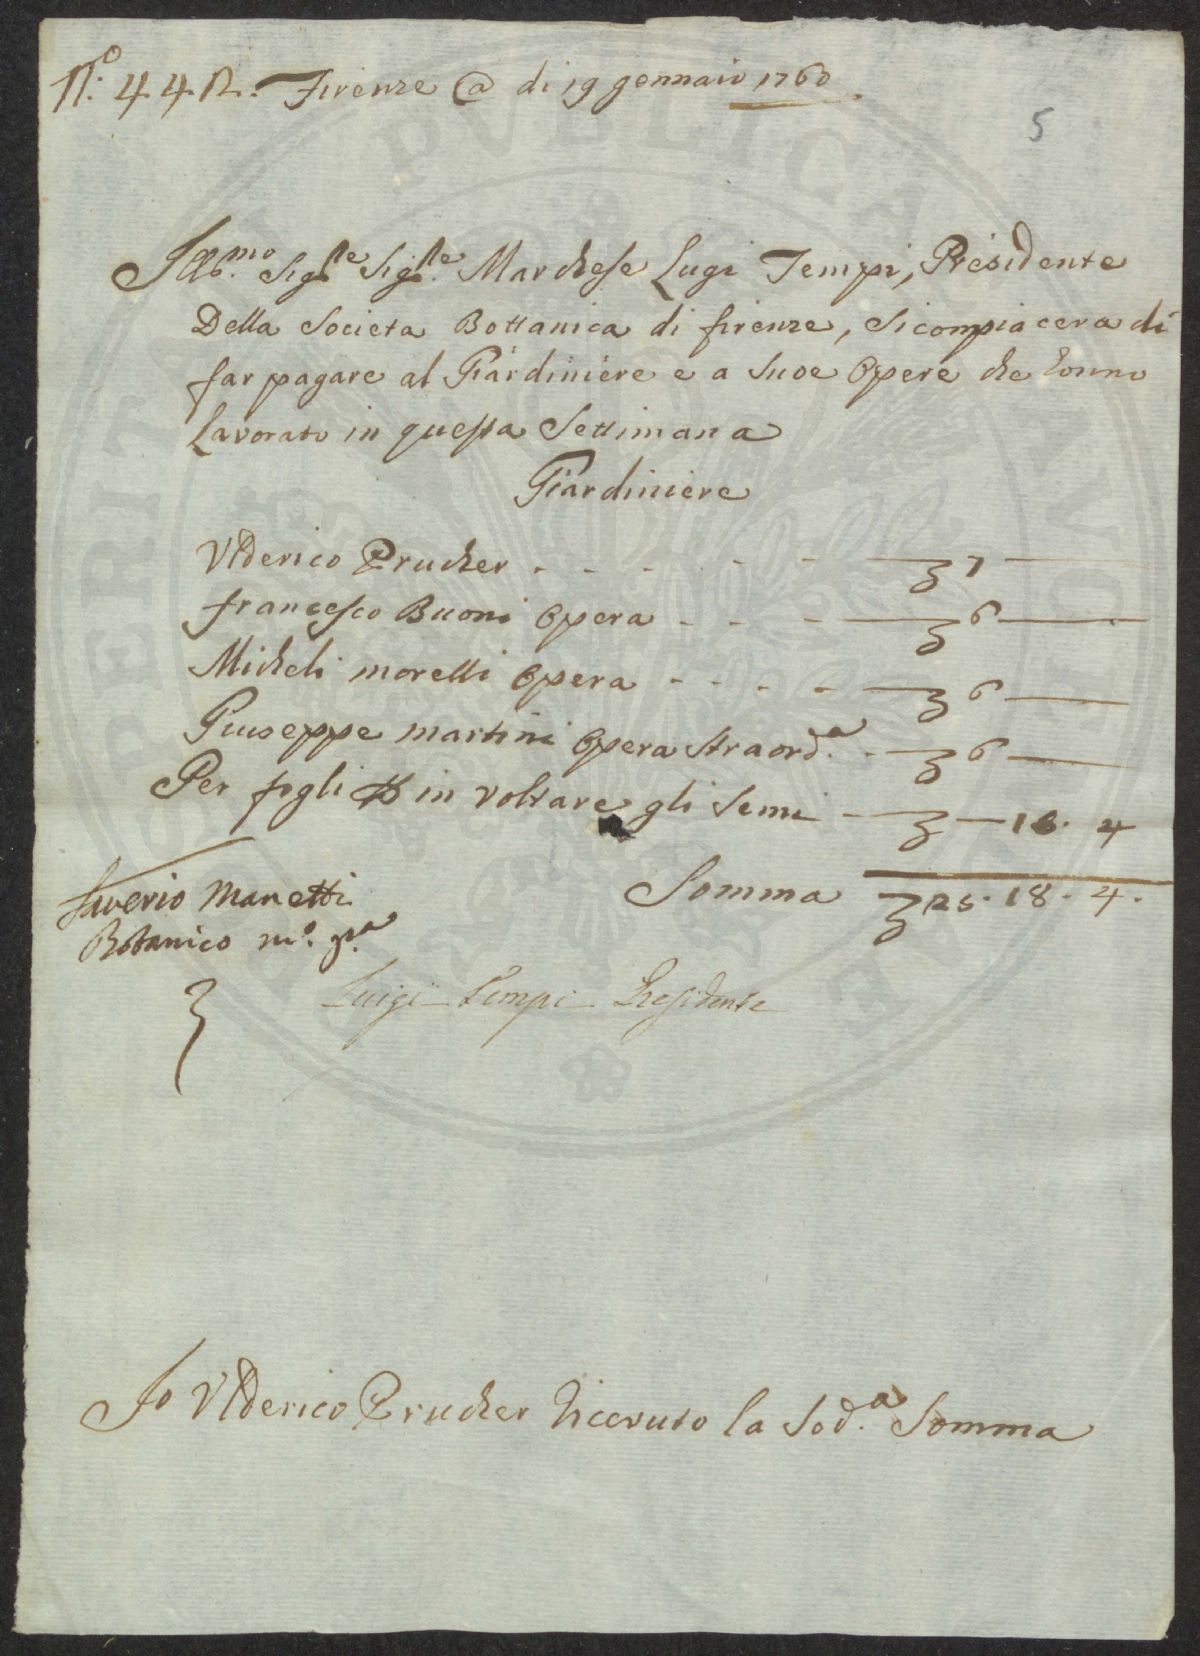 N.º 442. Firenze @ di 19 gennaio 1760
5
Ill.mo Sig.re Sig.re Marchese Lugi Tempi, Presidente
Della Societa Bottanica di firenze, si compiacera di
far pagare al Giardiniere e a suoe Opere che honno
Lavorato in questa Settimana
Giardiniere
Vlderico Prucher - - - - - 7
francesco Buoni Opera - - - 6
Micheli morelli Opera - - - - 6
Giuseppe martini Opera straord.a - 6
Per fogli in voltare gli Semi - 18. 4
Somma 25. 18. 4.
Saverio Manetti
Botanico m.º p.a
Luigi Tempi Presidente
Io Vlderico Prucher riceuuto la Sod.a Somma